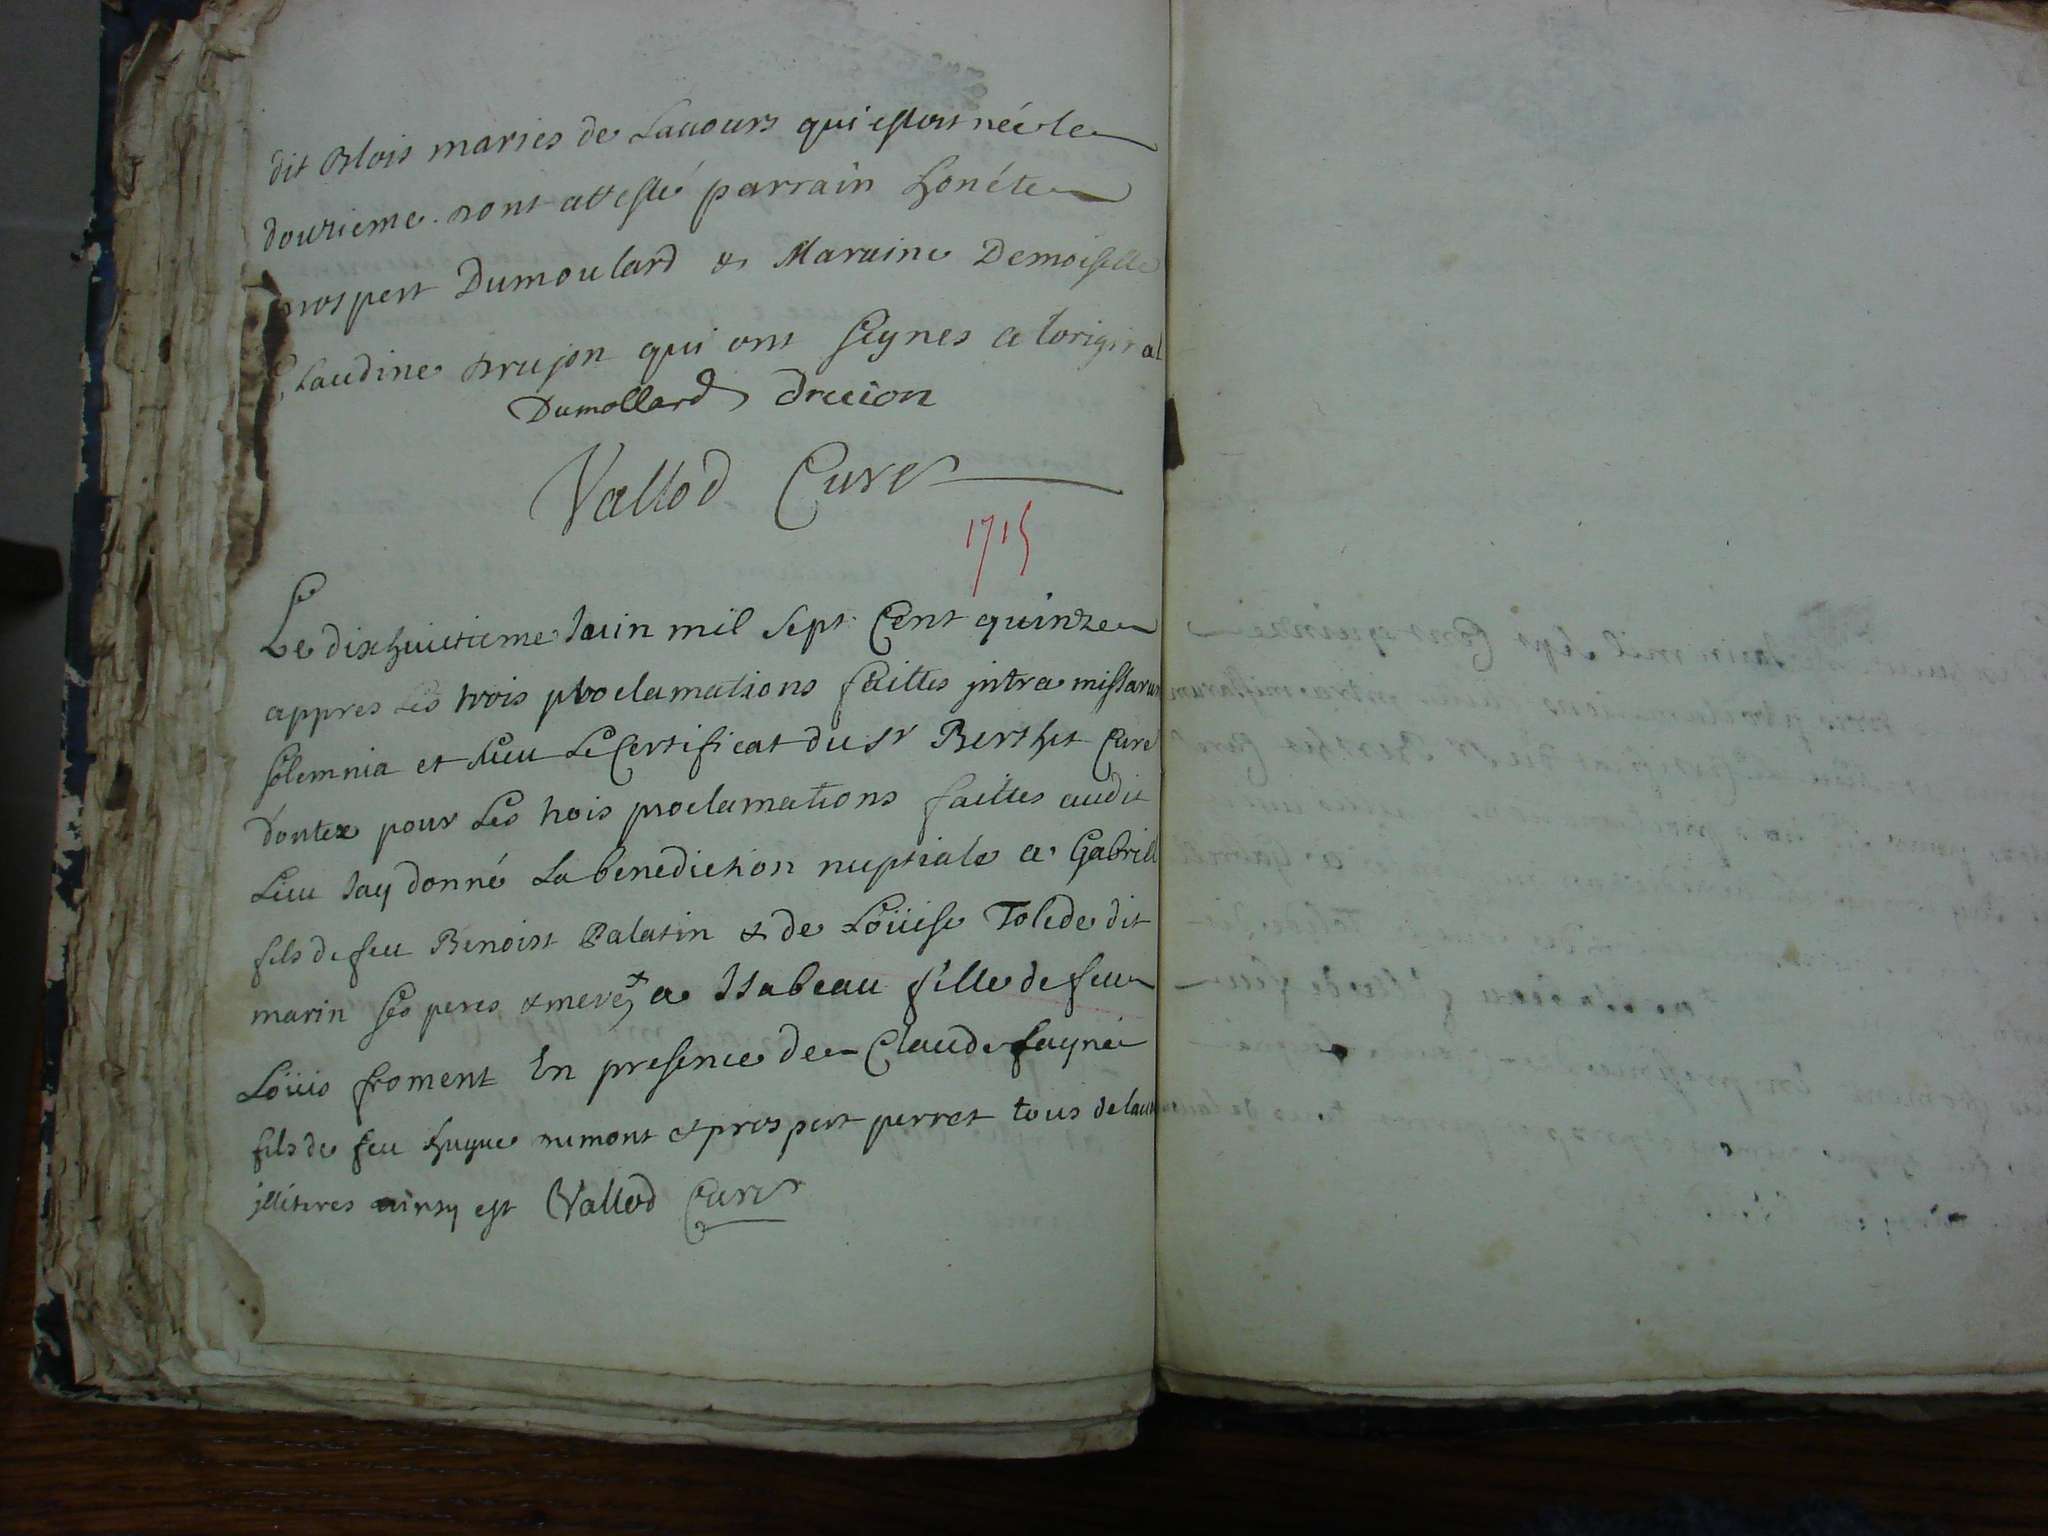 dit Blois maries de Lauours qui estoit néé le
douzieme. nont attesté parrain honéte
prospert Dumoulard & Maraine Demoiselle
Claudine Drujon qui ont signes a loriginal
Dumollard Druion
Vallod Curé
1715
Le dixhuictieme Juin mil sept Cent quinze
appres les trois proclamations faittes jntra missarum
solemnia et Veu Le Certificat du sr Berthet Curé
dontex pour Les trois proclamations faittes audit
Lieu Jay donné La benediction nuptiale a Gabriel
fils de feu Benoist Palatin & de Loüise Tolede dit
marin ses peres & meres & a Isabeau fille de feu
Loüis froment En presence de Claude
fils de feu hugue rumont & prospert perret tous de lauours
jlliteres ainsy est Vallod Curé